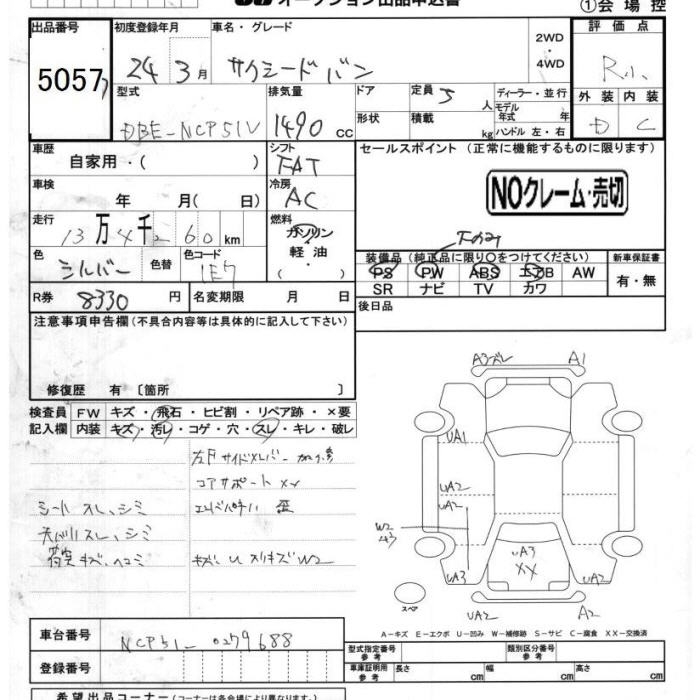 オークション出品申込書
①会場控
出品番号 初度登録年月 車名・グレード 2WD ・ 4WD 評価点
5057 24年3月 サクシードバン R
外装 内装
D C
型式 排気量 ドア 定員 5 人 ディーラー・並行
DBE-NCP51V 1490 cc 形状 積載 kg モデル年式 年式
ハンドル 左・右
車歴 シフト セールスポイント (正常に機能するものに限ります)
自家用・( ) FAT
車検 冷房
年 月( 日) AC
NOクレーム・売切
走行 燃料
13万4千260km ガソリン・軽油・
下のみ
色 シルバー 色替 色コード 1E7
装備品 (純正品に限り○をつけてください) 新車保証書
PS PW ABS エアB AW 有・無
SR ナビ TV カワ
R券 8330円 名変期限 月 日
後日品
注意事項申告欄 (不具合内容等は具体的に記入して下さい)
修復歴 有 〔箇所 〕
検査員 FW キズ・飛石・ヒビ割・リペア跡・×要
記入欄 内装 キズ・汚レ・コゲ・穴・スレ・キレ・破レ
コアサポートXX
シートスレ、シミ
天バリスレ、シミ
荷室キズ、ヘコミ
キズ、U スリキズW2
A3ズレ A1
UA1
UA2
UA2
W2
43
UA3
UA3
XX
スペア
UA2 A2
A−キズ E−エクボ U−凹み W−補修跡 S−サビ C−腐食 XX−交換済
車台番号 NCP51-0279688
登録番号
型式指定番号 参考 類別区分番号 参考
車庫証明用 参考 長さ cm 幅 cm 高さ cm
希望出品コーナー (コーナーは各会場により異なります)